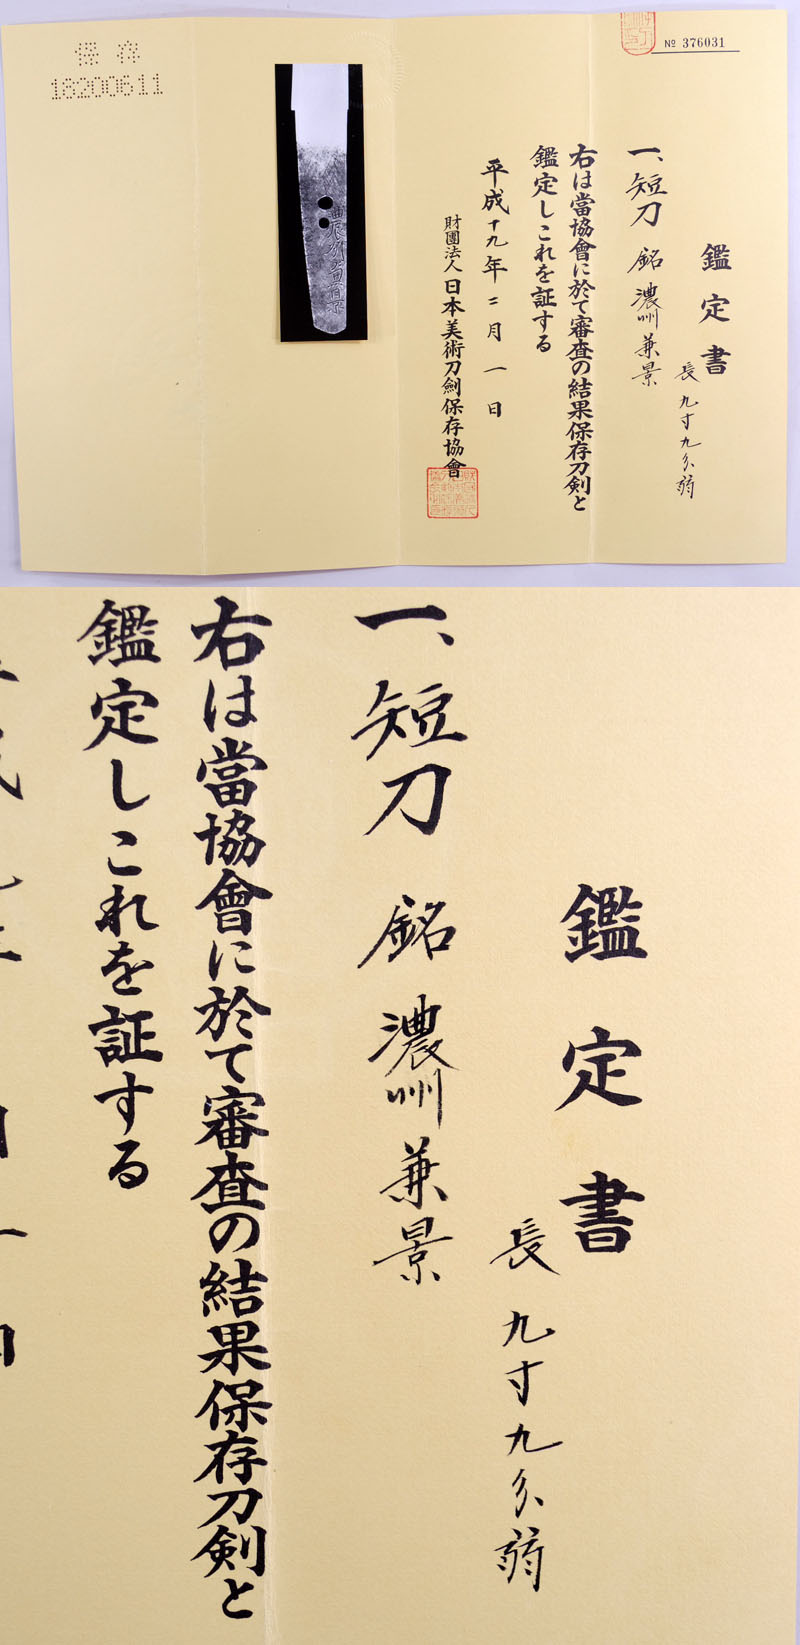 保存
18200611
№ 376031
鑑定書
長 九寸九分弱
一、短刀 銘 濃州兼景
右は當協會に於て審査の結果保存刀剣と
鑑定しこれを証する
平成十九年二月一日
財團法人日本美術刀劍保存協會
濃州兼景
鑑定書
長 九寸九分弱
一、短刀 銘 濃州兼景
右は當協會に於て審査の結果保存刀剣と
鑑定しこれを証する